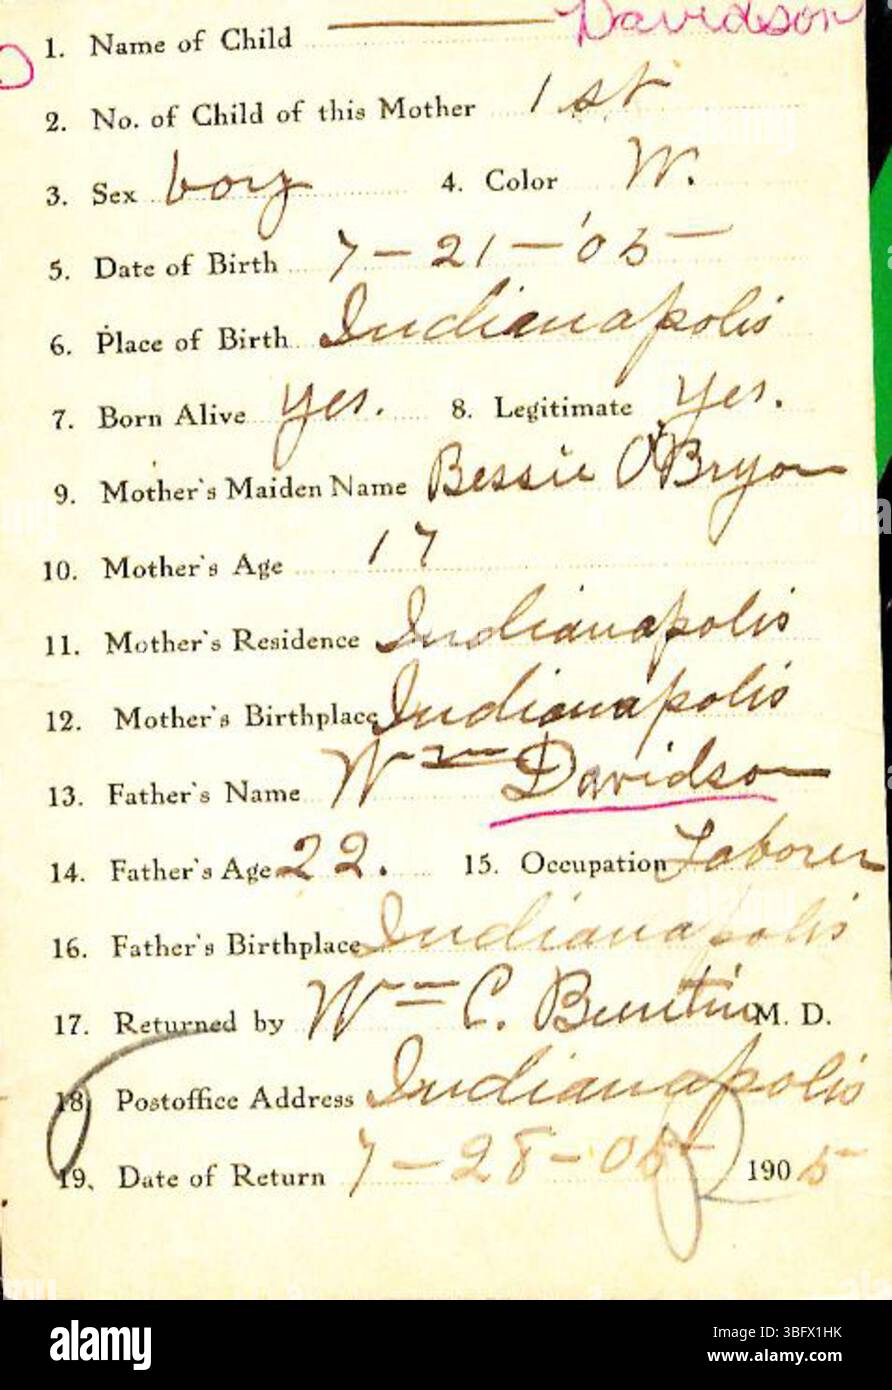 Davidson
1. Name of Child
2. No. of Child of this Mother 1st
3. Sex boy 4. Color W.
5. Date of Birth 7-21-'05-
6. Place of Birth Indianapolis
7. Born Alive yes. 8. Legitimate yes.
9. Mother's Maiden Name Bessie O'Bryon
10. Mother's Age 17
11. Mother's Residence Indianapolis
12. Mother's Birthplace Indianapolis
13. Father's Name Wm Davidson
14. Father's Age 22. 15. Occupation Laborer
16. Father's Birthplace Indianapolis
17. Returned by Wm C. Buntin M. D.
18. Postoffice Address Indianapolis
19. Date of Return 7-28-05- 1905
alamy
Image ID: 3BFX1HK
www.alamy.com